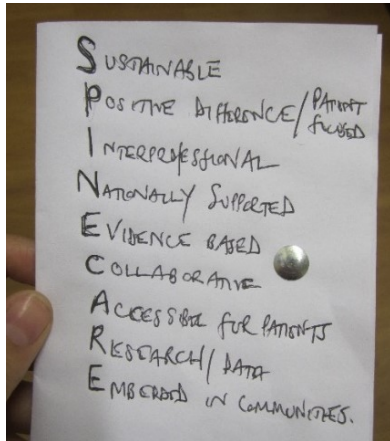 SUSTAINABLE
POSITIVE DIFFERENCE/PATIENT FOCUSED
INTERPROFESSIONAL
NATIONALLY SUPPORTED
EVIDENCE BASED
COLLABORATIVE
ACCESSIBLE FOR PATIENTS
RESEARCH/DATA
EMBEDDED IN COMMUNITIES.